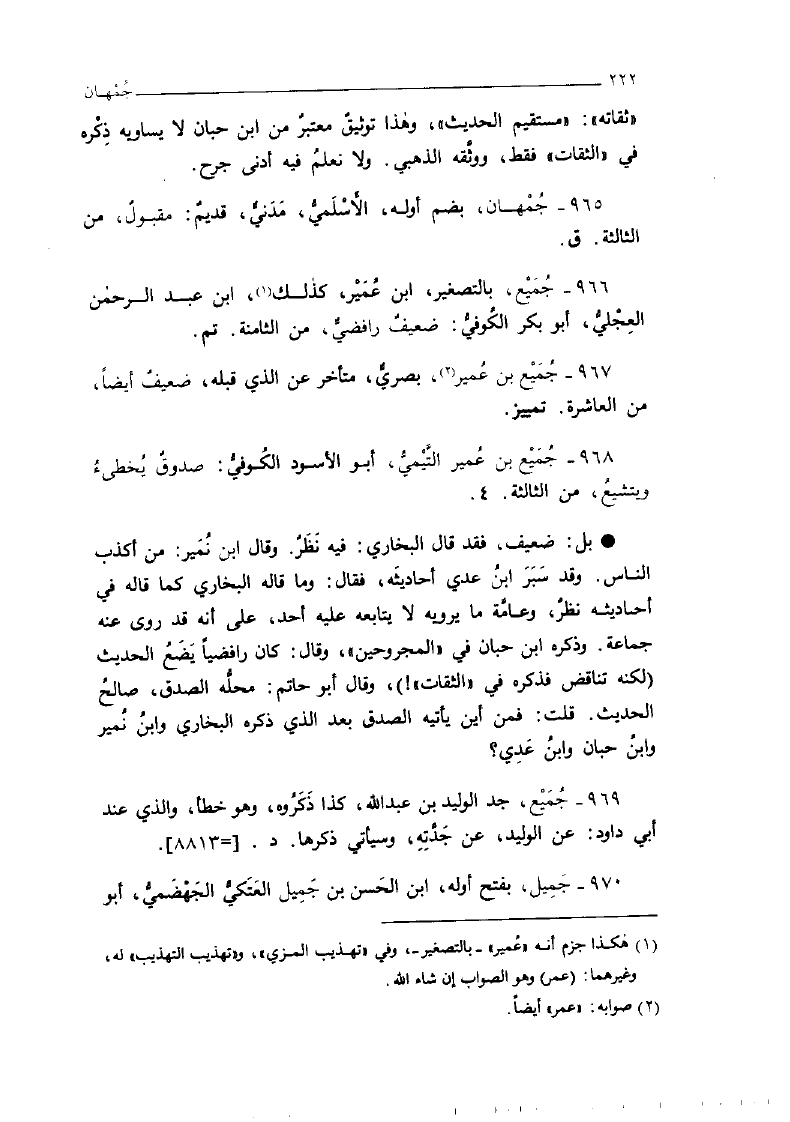 ٢٢٢ جُمْهـان
«ثقاته»: «مستقيم الحديث»، وهٰذا توثيقٌ معتبرٌ من ابن حبان لا يساويه ذِكْره
في «الثقات» فقط، ووثَّقه الذهبي. ولا نعلمُ فيه أدنى جرح.
٩٦٥ـ جُمْهـان، بضم أولـه، الأَسْلَميُّ، مَدَنيٌّ، قديمٌ: مقبولٌ، من
الثالثة. ق.
٩٦٦ـ جُمَيْع، بالتصغير، ابن عُمَيْر، كذٰلـك(١)، ابن عبـد الـرحمٰن
العِجْليُّ، أبو بكر الكُوفيُّ: ضعيفٌ رافضيٌّ، من الثامنة. تم.
٩٦٧ـ جُمَيْع بن عُمير(٢)، بصريٌّ، متأخر عن الذي قبله، ضعيفٌ أيضاً،
من العاشرة. تمييز.
٩٦٨ـ جُمَيْع بن عُمير التَّيْميُّ، أبـو الأسود الكُـوفيُّ: صدوقٌ يُخطىءُ
ويتشيعُ، من الثالثة. ٤.
● بل: ضعيف، فقد قال البخاري: فيه نَظَرٌ. وقال ابن نُمَير: من أكذب
النـاس. وقد سَبَرَ ابنُ عدي أحاديثَه، فقال: وما قاله البخاري كما قاله في
أحـاديثـه نظرٌ، وعـامَّة ما يرويه لا يتابعه عليه أحد، على أنه قد روى عنه
جماعة. وذكره ابن حبان في «المجروحين»، وقال: كان رافضياً يَضَعُ الحديث
(لكنه تناقض فذكره في «الثقات»!)، وقال أبو حاتم: محلُّه الصدق، صالحُ
الحديث. قلت: فمن أين يأتيه الصدق بعد الذي ذكره البخاري وابنُ نُمير
وابنُ حبان وابنُ عَدِي؟
٩٦٩ـ جُمَيْع، جد الوليد بن عبدالله، كذا ذَكَرُوه، وهو خطأ، والذي عند
أبي داود: عن الوليد، عن جَدَّتِهِ، وسيأتي ذكرها. د . [=٨٨١٣].
٩٧٠ـ جَمِيل، بفتح أوله، ابن الحَسن بن جَمِيل العَتَكيُّ الجَهْضَميُّ، أبو
(١) هٰكـذا جزم أنـه «عُمير» ـ بالتصغير ـ، وفي «تهذيب المزي»، و«تهذيب التهذيب» له،
وغيرهما: (عمر) وهو الصواب إن شاء الله.
(٢) صوابه: «عمر» أيضاً.